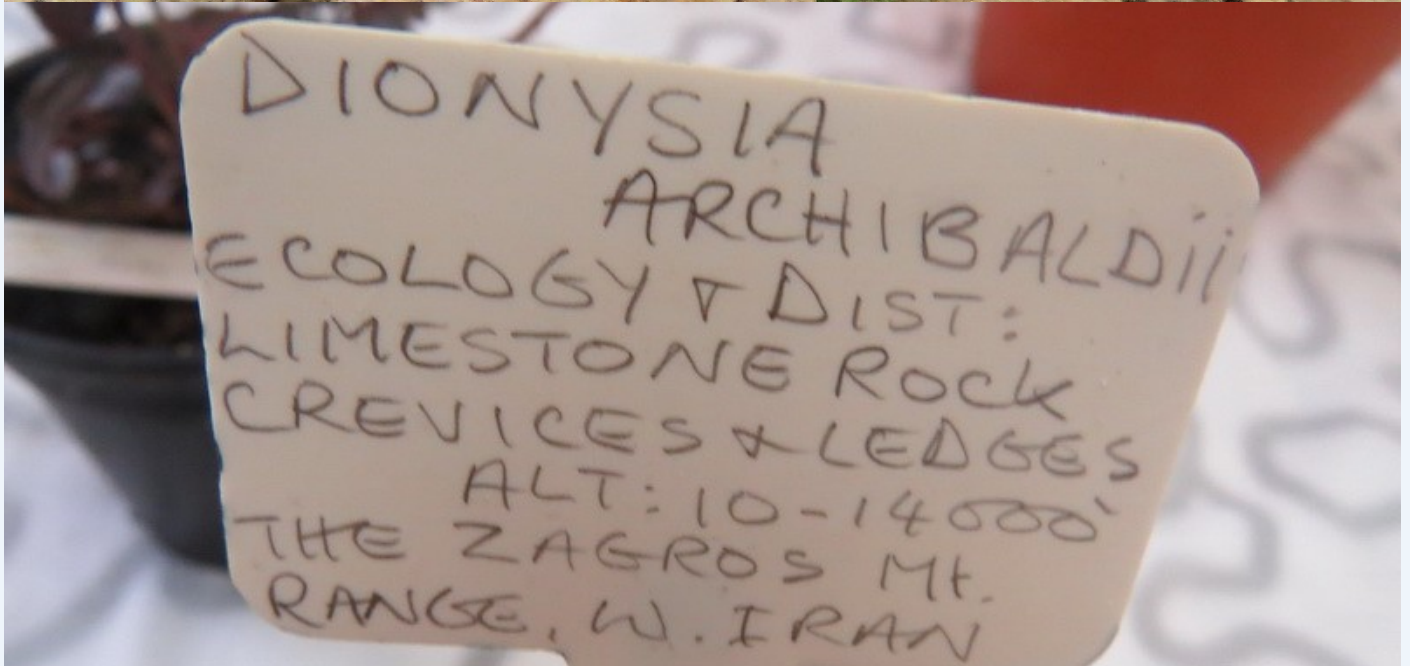 DIONYSIA
ARCHIBALDii
ECOLOGY & DIST:
LIMESTONE ROCK
CREVICES & LEDGES
ALT: 10-14000'
THE ZAGROS Mt.
RANGE, W. IRAN